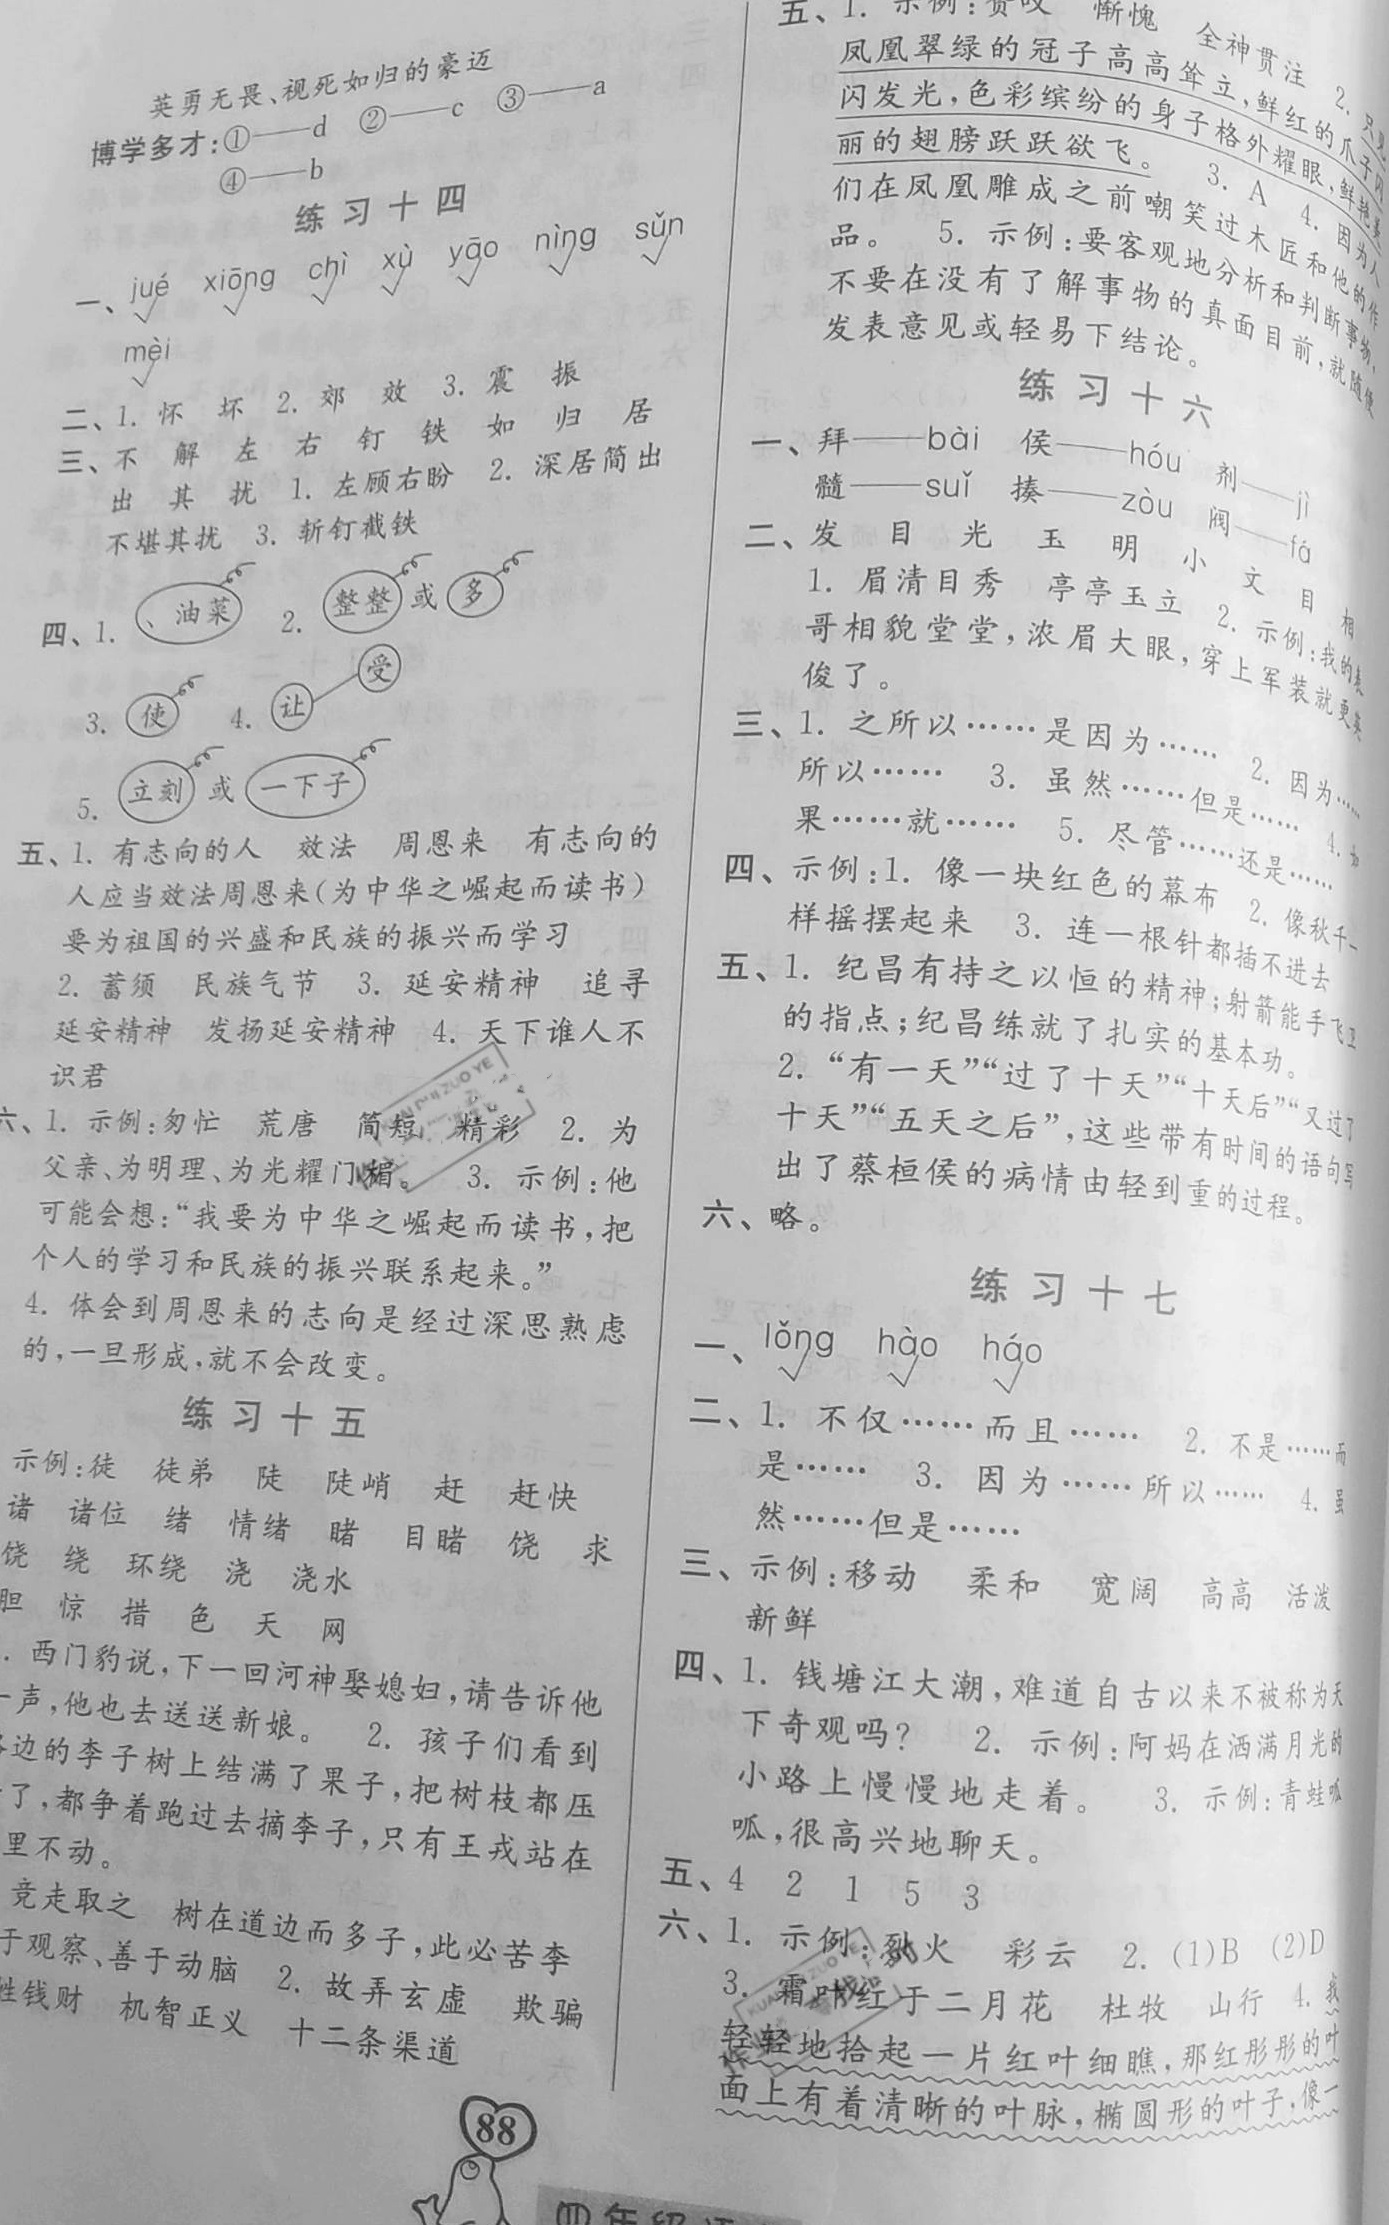 英勇无畏、视死如归的豪迈
博学多才:①——d ②——c ③——a
④——b
练习十四
一、jué xiōng chì xù yāo nìng sǔn
mèi
二、1. 怀 坏 2. 郊 效 3. 震 振
三、不 解 左 右 钉 铁 如 归 居
出 其 扰 1. 左顾右盼 2. 深居简出
不堪其扰 3. 斩钉截铁
四、1. 、油菜 2. 整整 或 多
3. 使 4. 让 受
5. 立刻 或 一下子
五、1. 有志向的人 效法 周恩来 有志向的
人应当效法周恩来(为中华之崛起而读书)
要为祖国的兴盛和民族的振兴而学习
2. 蓄须 民族气节 3. 延安精神 追寻
延安精神 发扬延安精神 4. 天下谁人不
识君
六、1. 示例:匆忙 荒唐 简短 精彩 2. 为
父亲、为明理、为光耀门楣。 3. 示例:他
可能会想:“我要为中华之崛起而读书,把
个人的学习和民族的振兴联系起来。”
4. 体会到周恩来的志向是经过深思熟虑
的,一旦形成,就不会改变。
练习十五
示例:徒 徒弟 陡 陡峭 赶 赶快
诸 诸位 绪 情绪 睹 目睹 饶 求
饶 绕 环绕 浇 浇水
胆 惊 措 色 天 网
. 西门豹说,下一回河神娶媳妇,请告诉他
一声,他也去送送新娘。 2. 孩子们看到
边的李子树上结满了果子,把树枝都压
了,都争着跑过去摘李子,只有王戎站在
里不动。
竞走取之 树在道边而多子,此必苦李
于观察、善于动脑 2. 故弄玄虚 欺骗
钱财 机智正义 十二条渠道
88
五、1. 示例:赞叹 惭愧 全神贯注 2. 只见
凤凰翠绿的冠子高高耸立,鲜红的爪子闪
闪发光,色彩缤纷的身子格外耀眼,鲜艳美
丽的翅膀跃跃欲飞。 3. A 4. 因为人
们在凤凰雕成之前嘲笑过木匠和他的作
品。 5. 示例:要客观地分析和判断事物,
不要在没有了解事物的真面目前,就随便
发表意见或轻易下结论。
练习十六
一、拜——bài 侯——hóu 剂——jì
髓——suǐ 揍——zòu 阀——fá
二、发 目 光 玉 明 小 文 目 相
1. 眉清目秀 亭亭玉立 2. 示例:我的表
哥相貌堂堂,浓眉大眼,穿上军装就更英
俊了。
三、1. 之所以……是因为…… 2. 因为……
所以…… 3. 虽然……但是…… 4. 如
果……就…… 5. 尽管……还是……
四、示例:1. 像一块红色的幕布 2. 像秋千一
样摇摆起来 3. 连一根针都插不进去
五、1. 纪昌有持之以恒的精神;射箭能手飞卫
的指点;纪昌练就了扎实的基本功。
2. “有一天”“过了十天”“十天后”“又过了
十天”“五天之后”,这些带有时间的语句写
出了蔡桓侯的病情由轻到重的过程。
六、略。
练习十七
一、lǒng hào háo
二、1. 不仅……而且…… 2. 不是……而
是…… 3. 因为……所以…… 4. 虽
然……但是……
三、示例:移动 柔和 宽阔 高高 活泼
新鲜
四、1. 钱塘江大潮,难道自古以来不被称为天
下奇观吗? 2. 示例:阿妈在洒满月光的
小路上慢慢地走着。 3. 示例:青蛙呱
呱,很高兴地聊天。
五、4 2 1 5 3
六、1. 示例:烈火 彩云 2. (1)B (2)D
3. 霜叶红于二月花 杜牧 山行 4. 我
轻轻地拾起一片红叶细瞧,那红彤彤的叶
面上有着清晰的叶脉,椭圆形的叶子,像一